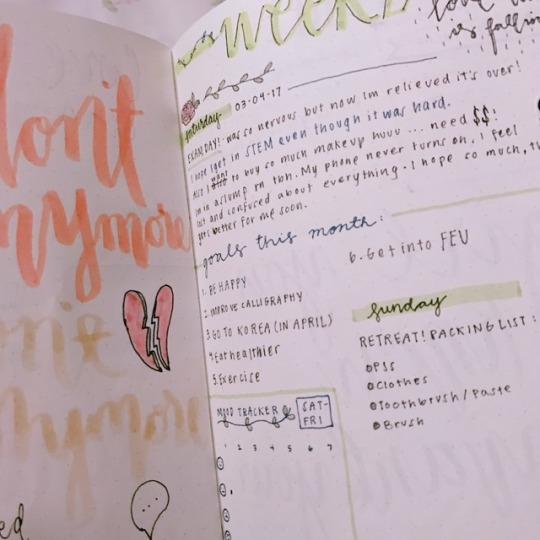 don't
anymore
anymore
ed
WEEKLY
love
is falling
saturday
03-04-17
EXAM DAY! was so nervous but now Im relieved it's over!
I hope I get in STEM even though it was hard.
Also I want to buy so much makeup huvv ... need $$!
im in a slump rn tbh. My phone never turns on, I feel
lost and confused about everything. I hope so much,
gets better for me soon.
goals this month:
1. BE HAPPY
2. IMPROVE CALLIGRAPHY
3. GO TO KOREA (IN APRIL)
4. Eat healthier
5. Exercise
6. Get into FEU
MOOD TRACKER
SAT-
FRI
1 2 3 4 5 6 7
sunday
RETREAT! PACKING LIST:
PJs
Clothes
Toothbrush / Paste
Brush